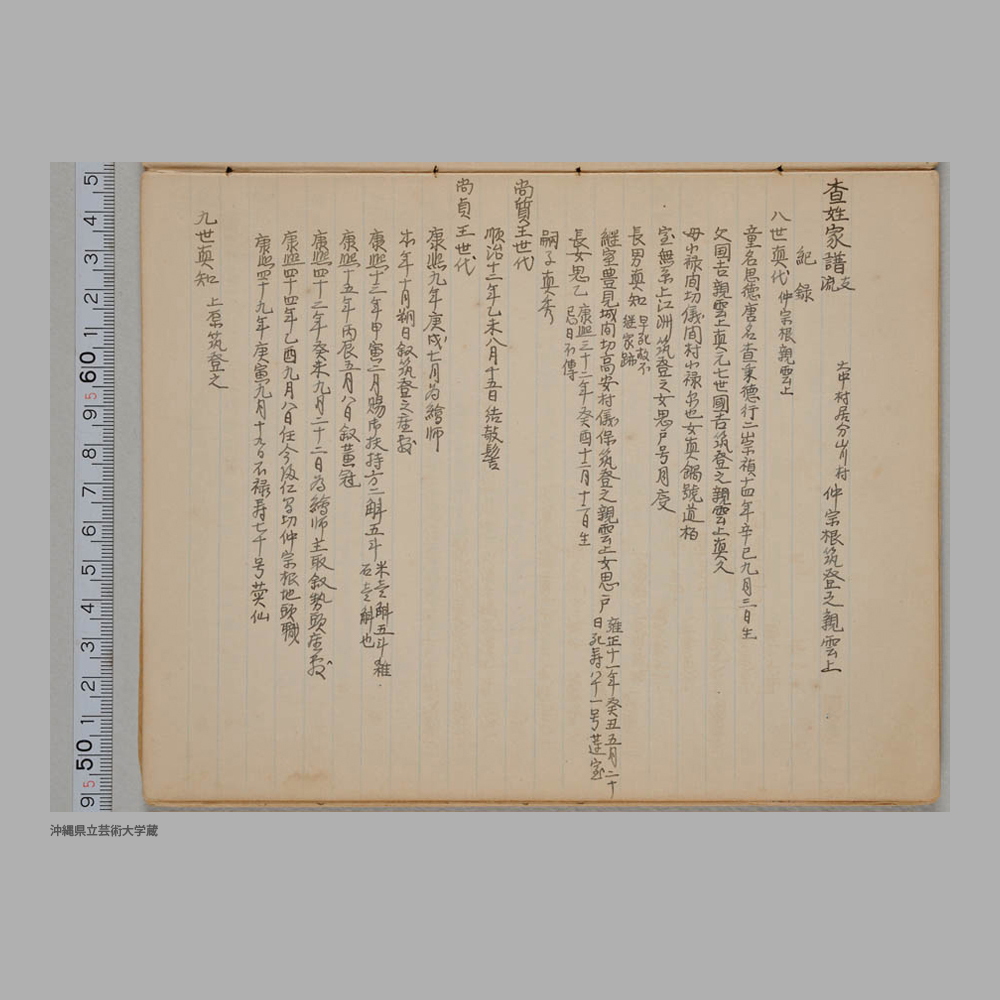 査姓家譜支流
大中村居分山川村 仲宗根筑登之親雲上
紀録
八世真代 仲宗根親雲上
童名思徳唐名査秉徳行二崇禎十四年辛巳九月三日生
父国吉親雲上真元七世國吉筑登之親雲上真久
母小禄間切儀間村小禄 也女真鍋號道柏
室無系上江洲筑登之女思戸号月慶
長男真知 早死故不継家跡
継室豊見城間切高安村儀保筑登之親雲上女思戸 雍正十一年癸丑五月二十日死寿八十一号蓮室
長女思乙 康熙三十二年癸酉十二月十一日生忌日不傳
嗣子真秀
尚質王世代
順治十二年乙未八月十五日結敧髻
尚貞王世代
康熙九年庚戌七月為繪師
本年十月朔日叙筑登之座敷
康熙十三年甲寅二月賜御扶持方二斛五斗 米壱斛五斗雑石壱斛也
康熙十五年丙辰五月八日叙黄冠
康熙四十二年癸未九月二十二日為繪師主取叙勢頭座敷
康熙四十四年乙酉九月八日任今帰仁間切仲宗根地頭職
康熙四十九年庚寅九月十九日不禄寿七十号英仙
九世真知 上原筑登之
5 4 3 2 1 60 9 8 7 6 5 4 3 2 1 50 9
5 5
沖縄県立芸術大学蔵